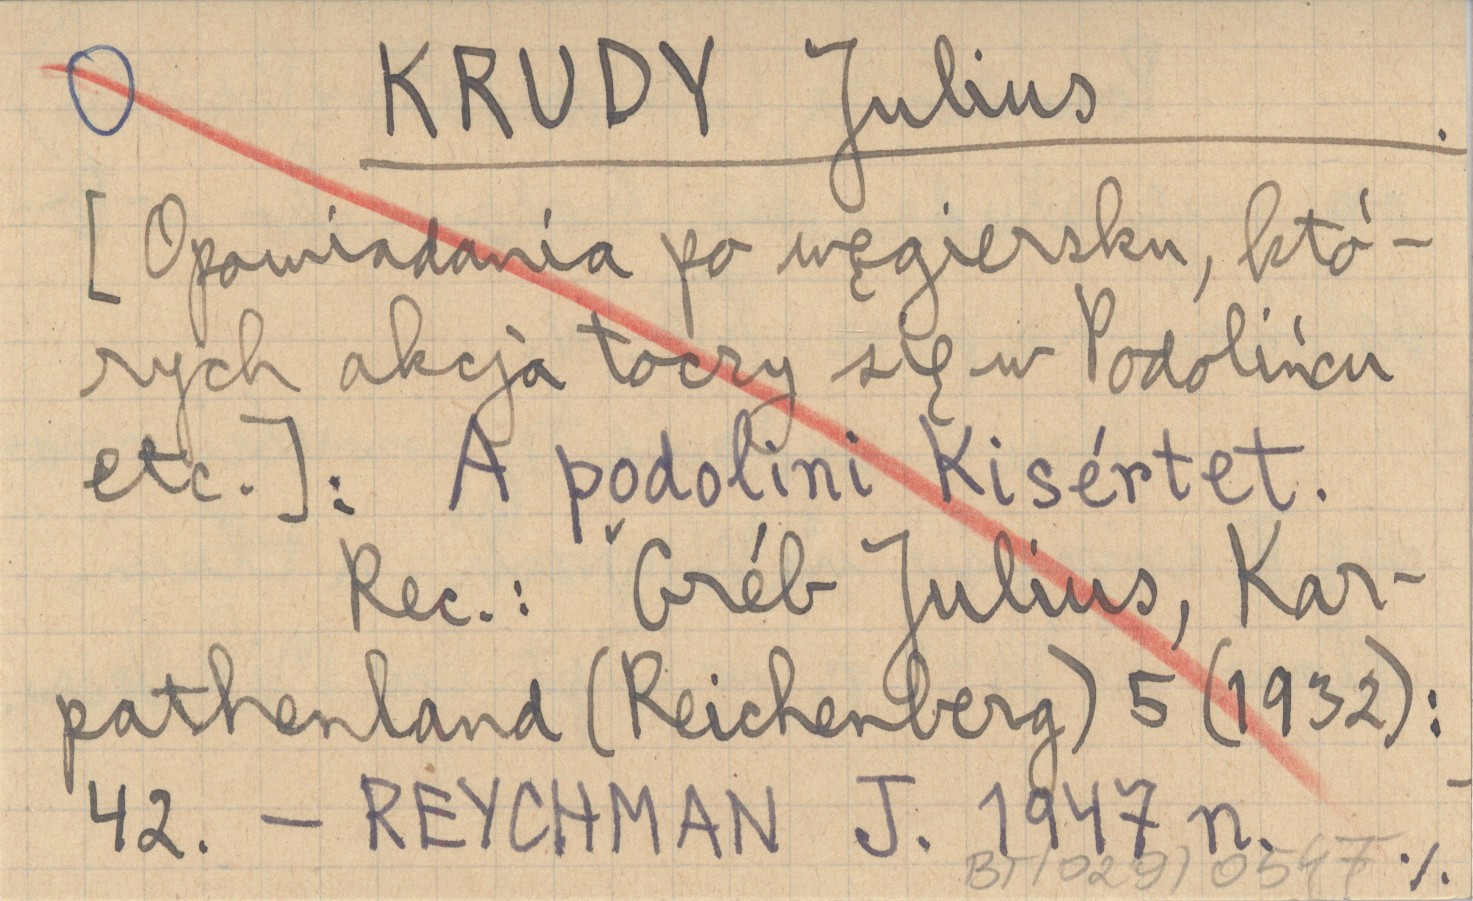 KRUDY Julius.
[Opowiadania po węgiersku, któ-
rych akcja toczy się w Podolińcu
etc.]: A podolini Kisértet.
Rec.: Gréb Julius, Kar-
pathenland (Reichenberg) 5 (1932):
42. – REYCHMAN J. 1947 n.
BT/029/0547 ·/.